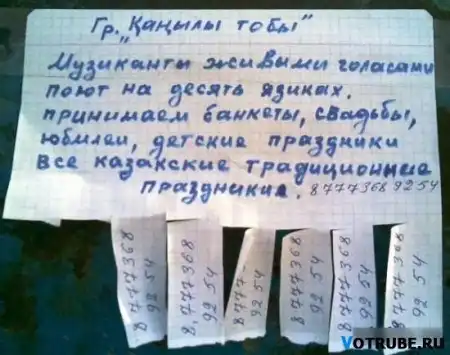 Гр. "Қаңылы тобы"
Музиканты живыми голасами
поют на десять язиках.
принимаем банкеты, свадьбы,
юбилеи, детские праздники
все казакские традиционные
праздники. 8777368 92 54
8777368
92 54
8,777368
92 54
8777-
92 54
8777368
92 54
8777368
92 64
8777368
92 54
VOTRUBE.RU